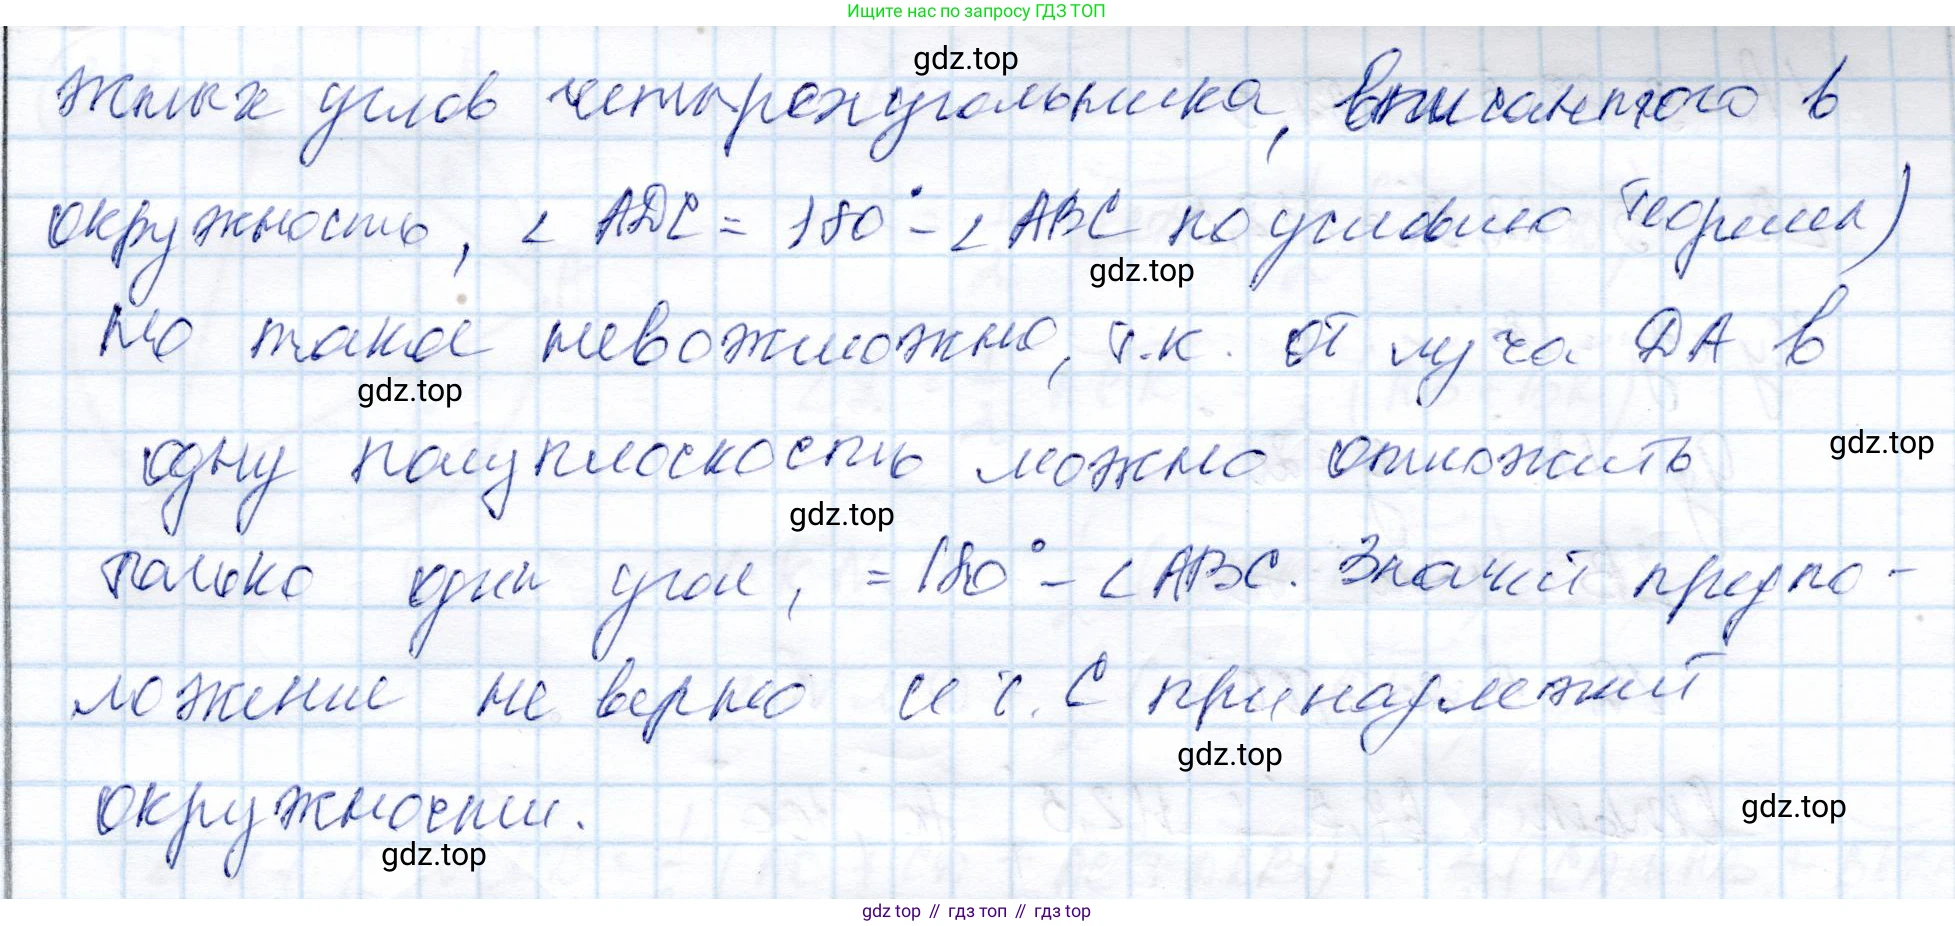 Ищите нас по запросу ГДЗ ТОП
gdz.top
жных углов четырехугольника, вписанного в
окружность, ∠ ADC = 180° - ∠ ABC по условию теоремы)
gdz.top
но такое невозможно, т.к. от луча DA в
gdz.top
одну полуплоскость можно отложить
gdz.top
gdz.top
только один угол, = 180° - ∠ ABC. Значит предпо-
ложение не верно и т. C принадлежит
gdz.top
окружности.
gdz.top
gdz.top
gdz top // гдз топ // гдз top